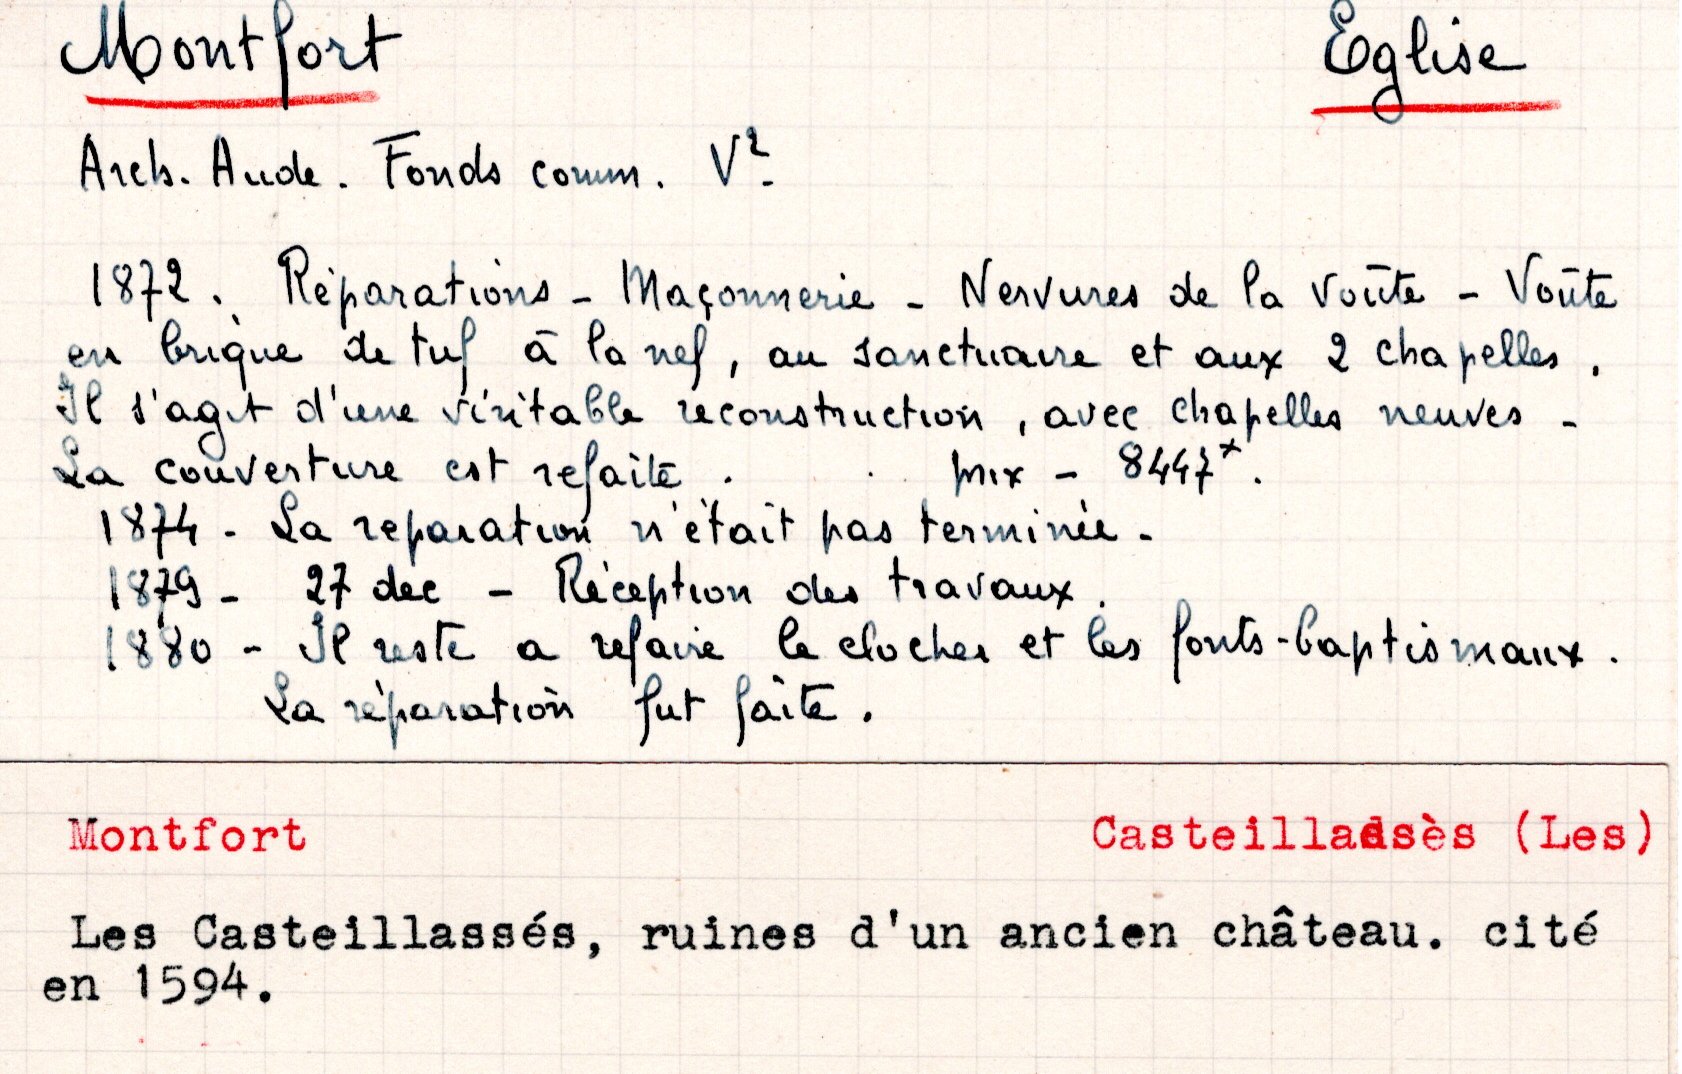 Montfort Eglise
Arch. Aude. Fonds comm. V².
1872. Réparations - Maçonnerie - Nervures de la voûte - Voûte
en brique de tuf à la nef, au sanctuaire et aux 2 chapelles.
Il s'agit d'une véritable reconstruction, avec chapelles neuves -
La couverture est refaite. prix - 8447ᶠ.
1874 - La reparation n'était pas terminée -
1879 - 27 dec - Réception des travaux.
1880 - Il reste a refaire le clocher et les fonts-baptismaux.
La réparation fut faite.
Montfort Casteillassès (Les)
Les Casteillassés, ruines d'un ancien château. cité
en 1594.